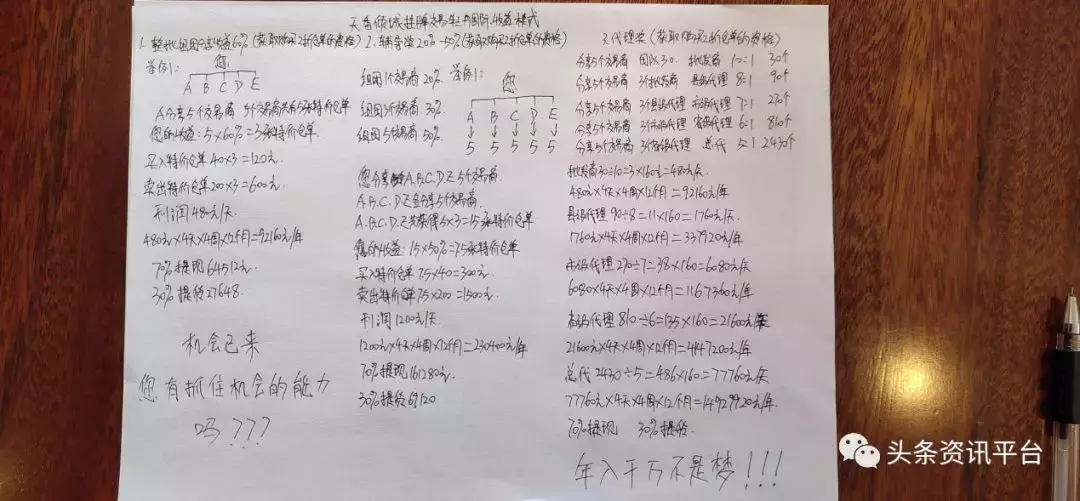 1. 整批组团分享收益60%(获取购买2折仓单的资格)
举例1:
您
A B C D E
A分享5个交易商
您的收益:5×60%=3张特价仓单
买入特价仓单 40×3=120元
卖出特价仓单 200×3=600元
利润480元/天
480元×4天×4周×12个月=92160元/年
70%提现64512元
30%提货27648
机会已来
您有抓住机会的能力
吗???
2. 辅导奖20%-50%(获取购买2折仓单的资格)
组团1个交易商 20%
组团3个交易商 30%
组团5个交易商 50%
举例1:
您
A B C D E
5 5 5 5 5
您分享A.B.C.D.E5个交易商
A.B.C.D.E各分享5个交易商
A.B.C.D.E共获得5×3=15张特价仓单
您的收益:15×50%=7.5张特价仓单
买入特价仓单 7.5×40=300元
卖出特价仓单 7.5×200=1500元
利润1200元/天
1200元×4天×4周×12个月=230400元/年
70%提现161280元
30%提货69120
3. 代理奖(获取购买2折仓单的资格)
分享5个交易商 团队30 批发商 10:1 30个
分享5个交易商 3个批发商 县级代理 8:1 90个
分享5个交易商 3个县级代理 市级代理 7:1 270个
分享5个交易商 3个市级代理 省级代理 6:1 810个
分享5个交易商 3个省级代理 总代 5:1 2430个
批发商 30÷10=3×160元=480元/天
480元×4天×4周×12个月=92160元/年
县级代理 90÷8=11×160=1760元/天
1760元×4天×4周×12个月=337920元/年
市级代理 270÷7=38×160=6080元/天
6080×4天×4周×12个月=1167360元/年
省级代理 810÷6=135×160=21600元/天
21600元×4天×4周×12个月=4147200元/年
总代 2430÷5=486×160=77760元/天
77760元×4天×4周×12个月=14929920元/年
70%提现 30%提货
年入千万不是梦!!!
头条资讯平台